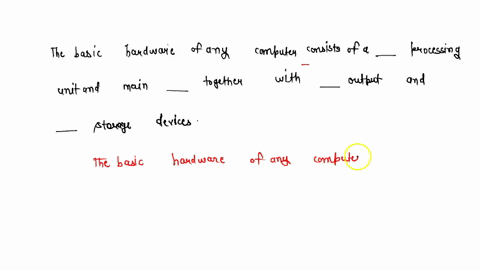 The basic hardware of any computer consists of a ___ processing
unit and main ___ together with ___ output and
___ storage devices.
The basic hardware of any compute